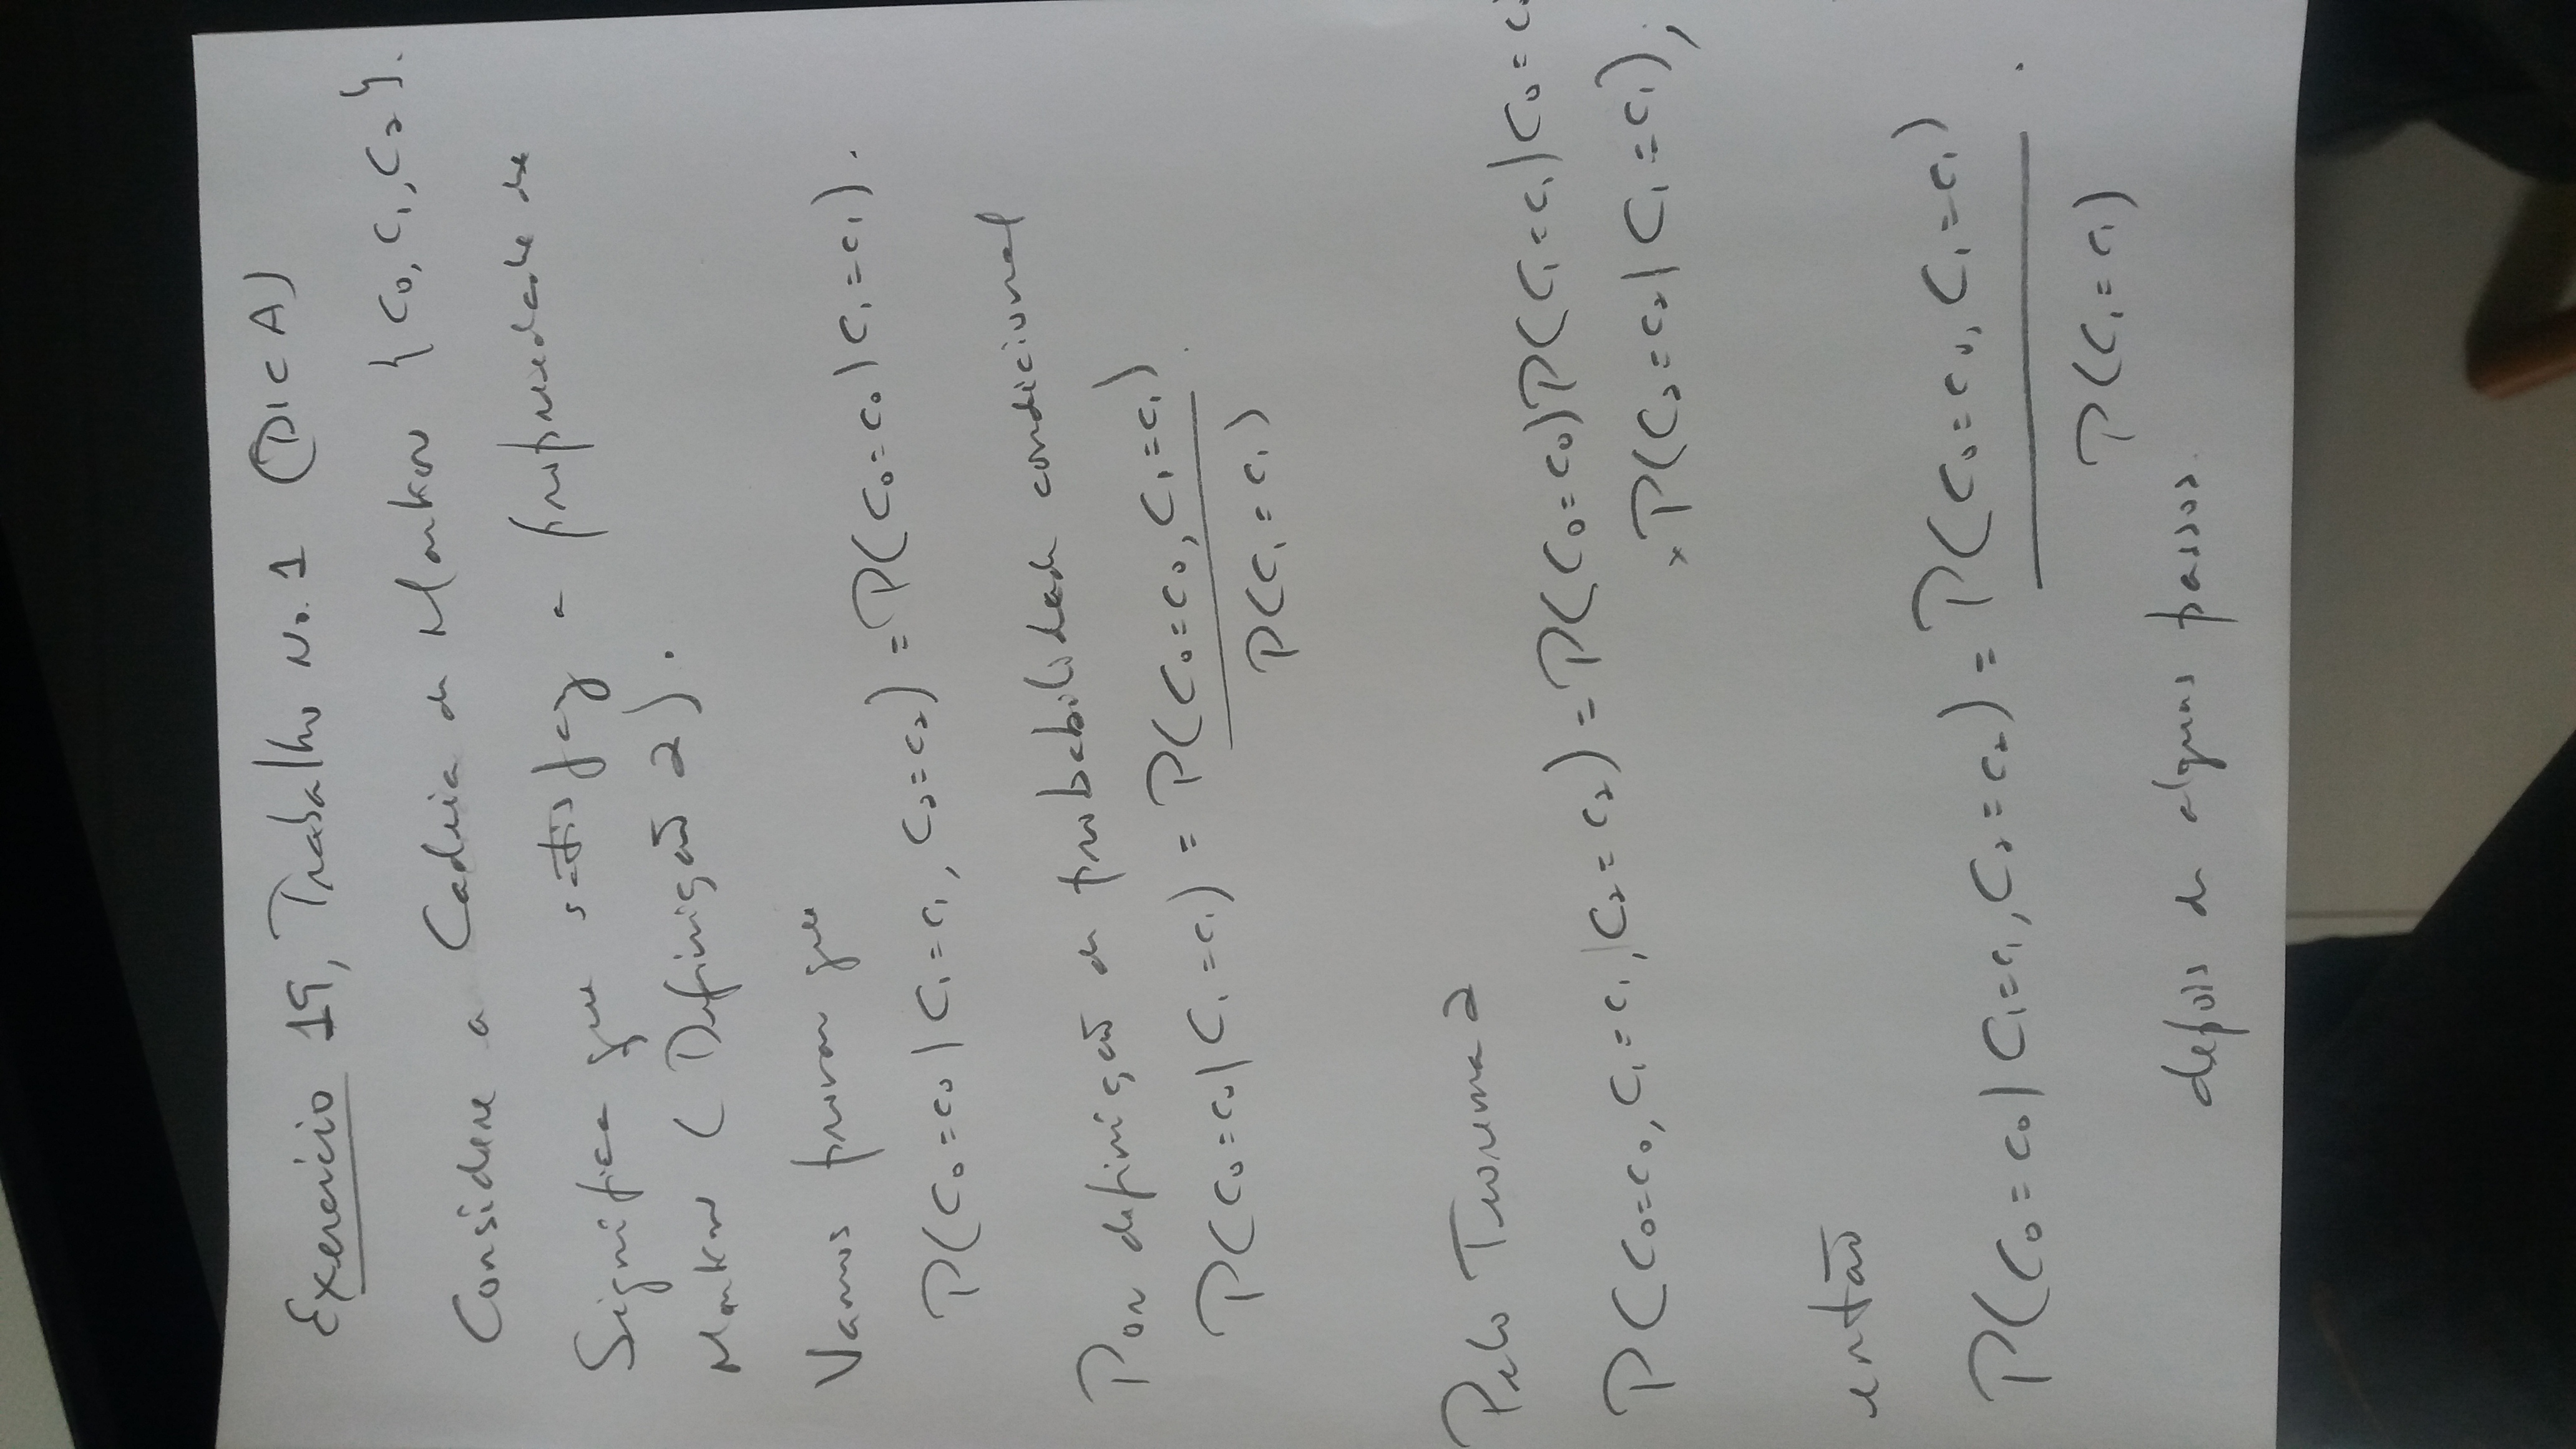 Exercício 19, Trabalho No. 1 (DICA)
Considere a Cadeia de Markov {C₀, C₁, C₂}.
Significa que satisfaz a propriedade de
Markov (Definição 2).
Vamos provar que
P(C₀=c₀ | C₁=c₁, C₂=c₂) = P(C₀=c₀ | C₁=c₁).
Por definição de probabilidade condicional
P(C₀=c₀ | C₁=c₁) = P(C₀=c₀, C₁=c₁)
P(C₁=c₁)
Pelo Teorema 2
P(C₀=c₀, C₁=c₁, C₂=c₂) = P(C₀=c₀)P(C₁=c₁ | C₀=c₀
×P(C₂=c₂ | C₁=c₁),
então
P(C₀=c₀ | C₁=c₁, C₂=c₂) = P(C₀=c₀, C₁=c₁) .
P(C₁=c₁)
depois de alguns passos.